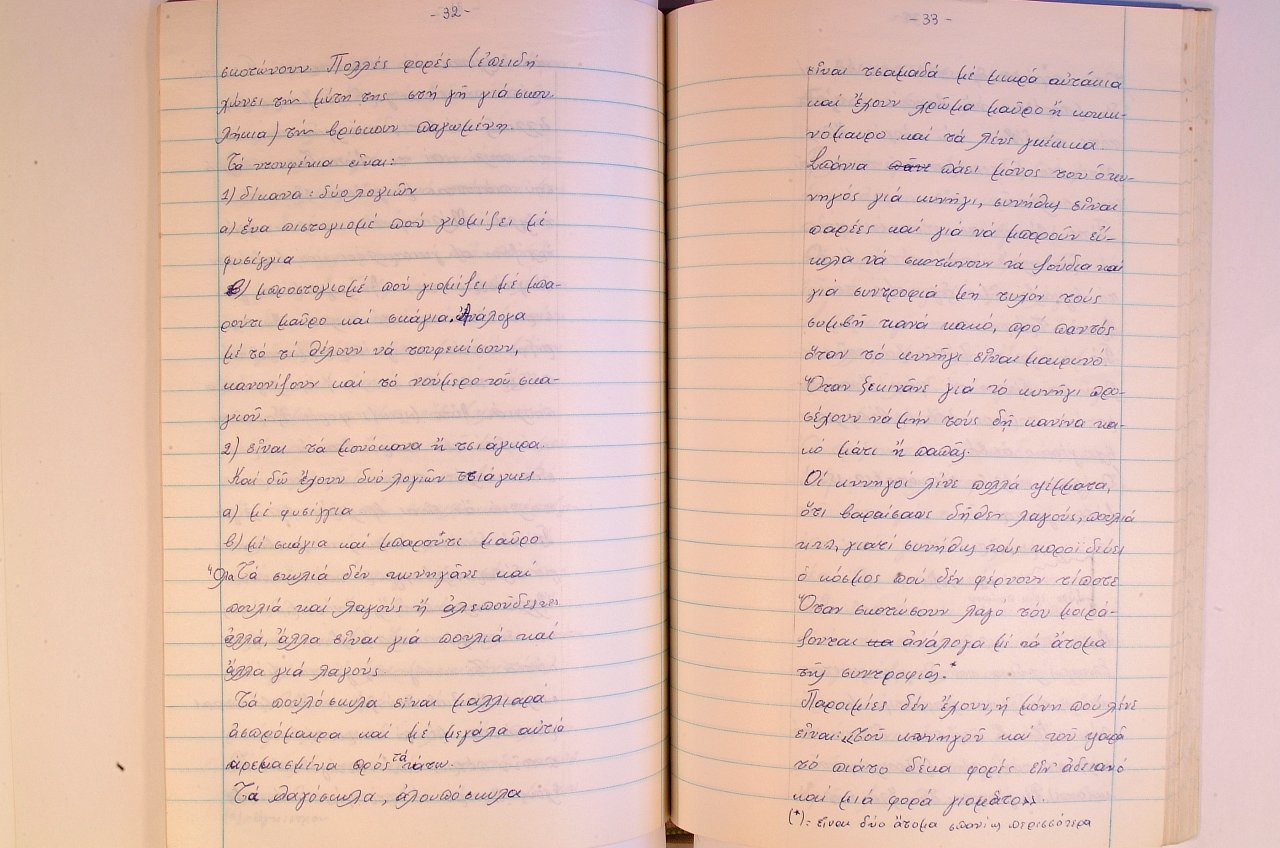 - 32 -
σκοτώνουν. Πολλές φορές (ἐπειδή
χώνει τήν μύτη της στή γῆ γιά σκου-
λήκια) τήν βρίσκουν παγωμένη.
Τά ντουφέκια εἶναι:
1) δίκανα: δύο λογιῶν
α) ἕνα πιστογιομέ πού γιομίζει μέ
φυσίγγια
β) μπροστογιομέ πού γιομίζει μέ μπα-
ρούτι μαῦρο καί σκάγια. Ἀνάλογα
μέ τό τί θέλουν νά τουφεκίσουν,
κανονίζουν καί τό νούμερο τοῦ σκα-
γιοῦ.
2) εἶναι τά μονόκανα ἤ τσιάγκρα.
Καί δῶ ἔχουν δυό λογιῶν τσιάγκρες
α) μέ φυσίγγια
β) μέ σκάγια καί μπαρούτι μαῦρο.
Ὅλα Τά σκυλιά δέν κυνηγᾶνε καί
πουλιά καί λαγούς ἤ ἀλεπούδες
ἀλλά, ἄλλα εἶναι γιά πουλιά καί
ἄλλα γιά λαγούς.
Τά πουλόσκυλα εἶναι μαλλιαρά
ἀσπρόμαυρα καί μέ μεγάλα αὐτιά
κρεμασμένα πρός τά κάτω.
Τά λαγόσκυλα, ἀλουπόσκυλα
- 33 -
εἶναι τσαμαδά μέ μικρά αὐτάκια
καί ἔχουν χρῶμα μαῦρο ἤ κοκκι-
νόμαυρο καί τά λένε γκέκικα
Σπάνια πάει μόνος του ὁ κυ-
νηγός γιά κυνήγι, συνήθως εἶναι
παρέες καί γιά νά μποροῦν εὔ-
κολα νά σκοτώνουν τά ζούδια καί
γιά συντροφιά μή τυχόν τούς
συμβῆ κανά κακό, πρό παντός
ὅταν τό κυνήγι εἶναι μακρινό.
Ὅταν ξεκινᾶνε γιά τό κυνήγι προ-
σέχουν νά μήν τούς δῆ κανένα κα-
κό μάτι ἤ παπᾶς.
Οἱ κυνηγοί λένε πολλά ψέμματα,
ὅτι βαραίσανε δῆθεν λαγούς, πουλιά
κτλ, γιατί συνήθως τούς κοροϊδεύει
ὁ κόσμος πού δέν φέρνουν τίποτε
Ὅταν σκοτώσουν λαγό τόν μοιρά-
ζονται ἀνάλογα μέ τά ἄτομα
τῆς συντροφιᾶς.*
Παροιμίες δέν ἔχουν, ἡ μόνη πού λένε
εἶναι: "Τοῦ κυνηγοῦ καί τοῦ ψαρᾶ
τό πιάτο δέκα φορές εἶν' ἀδειανό
καί μιά φορά γιομᾶτο".
(*): εἶναι δύο ἄτομα σπανίως περισσότερα